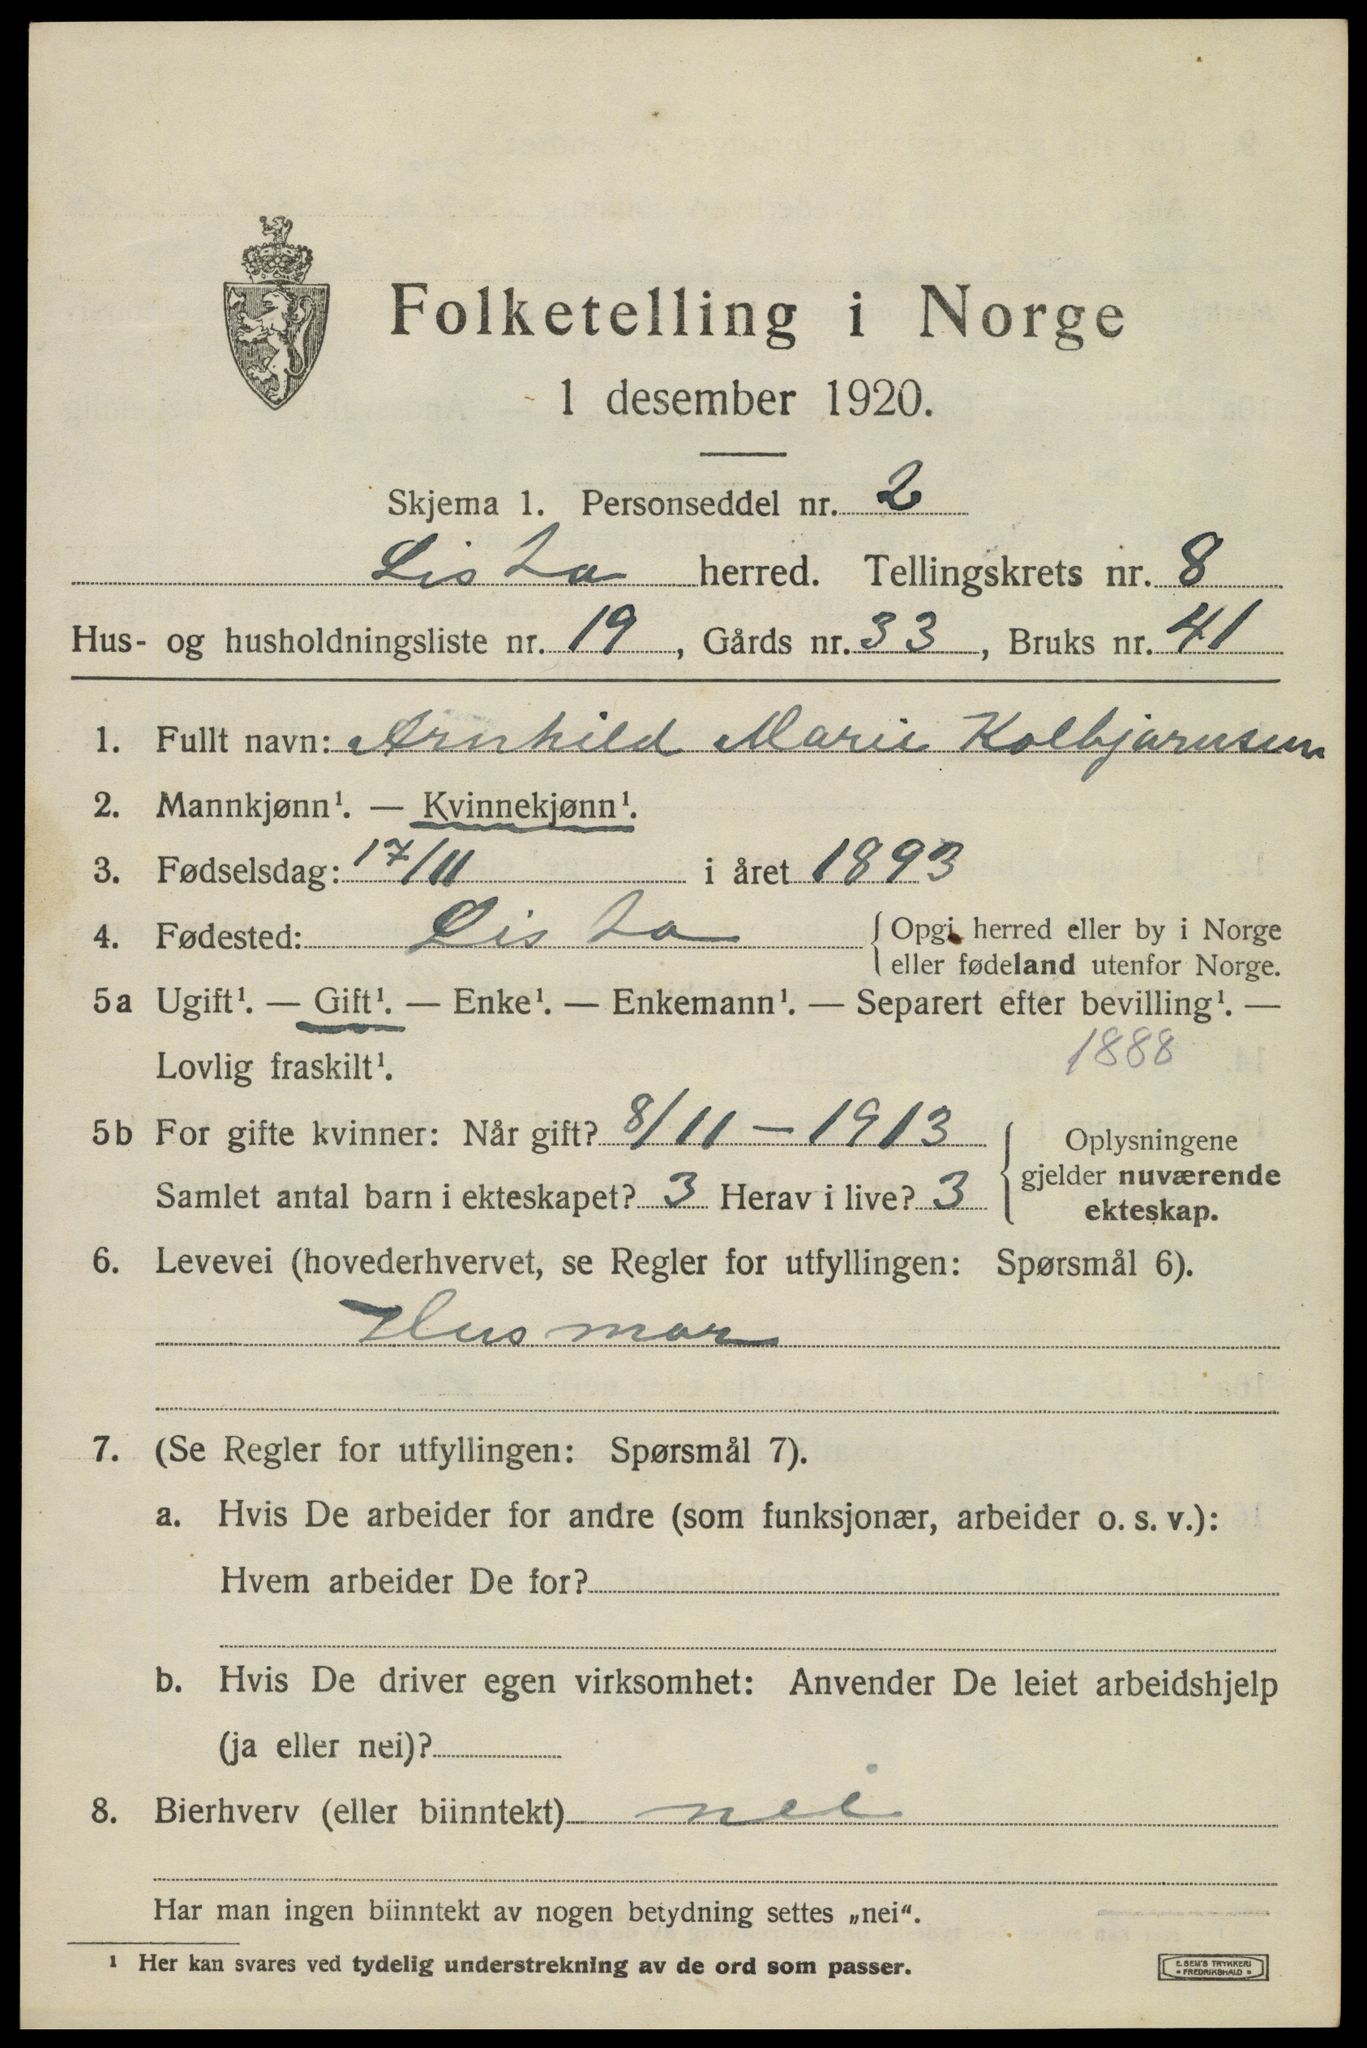 Folketelling i Norge
1 desember 1920.
Skjema 1. Personseddel nr. 2
Lista herred. Tellingskrets nr. 8
Hus- og husholdningsliste nr. 19, Gårds nr. 33, Bruks nr. 41
1. Fullt navn: Arnhild Marie Kolbjørnsen
2. Mannkjønn¹. — Kvinnekjønn¹.
3. Fødselsdag: 17/11 i året 1893
4. Fødested: Lista { Opgi herred eller by i Norge
eller fødeland utenfor Norge.
5a Ugift¹. — Gift¹. — Enke¹. — Enkemann¹. — Separert efter bevilling¹. —
Lovlig fraskilt¹. 1888
5b For gifte kvinner: Når gift? 8/11 – 1913
Samlet antal barn i ekteskapet? 3 Herav i live? 3
{ Oplysningene
gjelder nuværende
ekteskap.
6. Levevei (hovederhvervet, se Regler for utfyllingen: Spørsmål 6).
Husmor
7. (Se Regler for utfyllingen: Spørsmål 7).
a. Hvis De arbeider for andre (som funksjonær, arbeider o. s. v.):
Hvem arbeider De for?
b. Hvis De driver egen virksomhet: Anvender De leiet arbeidshjelp
(ja eller nei)?
8. Bierhverv (eller biinntekt) nei
Har man ingen biinntekt av nogen betydning settes „nei“.
¹ Her kan svares ved tydelig understrekning av de ord som passer.
E. SEM'S TRYKKERI
FREDRIKSHALD